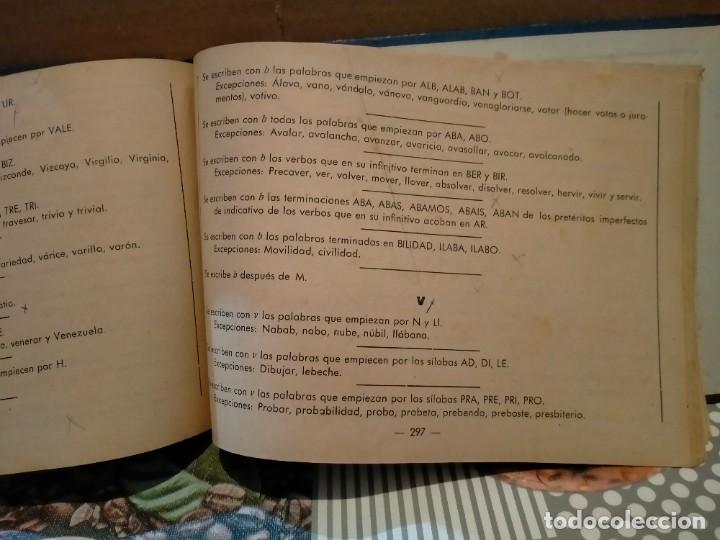 UR.
piecen por VALE.
BIZ.
izconde, Vizcaya, Virgilio, Virginia,
TRE, TRI.
travesar, trivio y trivial.
ariedad, várice, varilla, varón.
atio.
E.
venerar y Venezuela.
mpiecen por H.
Se escriben con b las palabras que empiezan por ALB, ALAB, BAN y BOT.
Excepciones: Álava, vano, vándalo, vánova, vanguardia, vanagloriarse, votar (hacer votos o jura-
mentos), votivo.
Se escriben con b todas las palabras que empiezan por ABA, ABO.
Excepciones: Avalar, avalancha, avanzar, avaricia, avasallar, avocar, avolcanado.
Se escriben con b los verbos que en su infinitivo terminan en BER y BIR.
Excepciones: Precaver, ver, volver, mover, llover, absolver, disolver, resolver, hervir, vivir y servir.
Se escriben con b las terminaciones ABA, ABAS, ABAMOS, ABAIS, ABAN de los pretéritos imperfectos
de indicativo de los verbos que en su infinitivo acaban en AR.
Se escriben con b las palabras terminadas en BILIDAD, ILABA, ILABO.
Excepciones: Movilidad, civilidad.
Se escribe b después de M.
V
Se escriben con v las palabras que empiezan por N y LI.
Excepciones: Nabab, nabo, nube, núbil, llábana.
Se escriben con v las palabras que empiecen por las sílabas AD, DI, LE.
Excepciones: Dibujar, lebeche.
Se escriben con v las palabras que empiezan por las sílabas PRA, PRE, PRI, PRO.
Excepciones: Probar, probabilidad, probo, probeta, prebenda, preboste, presbiterio.
— 297 —
todocoleccion